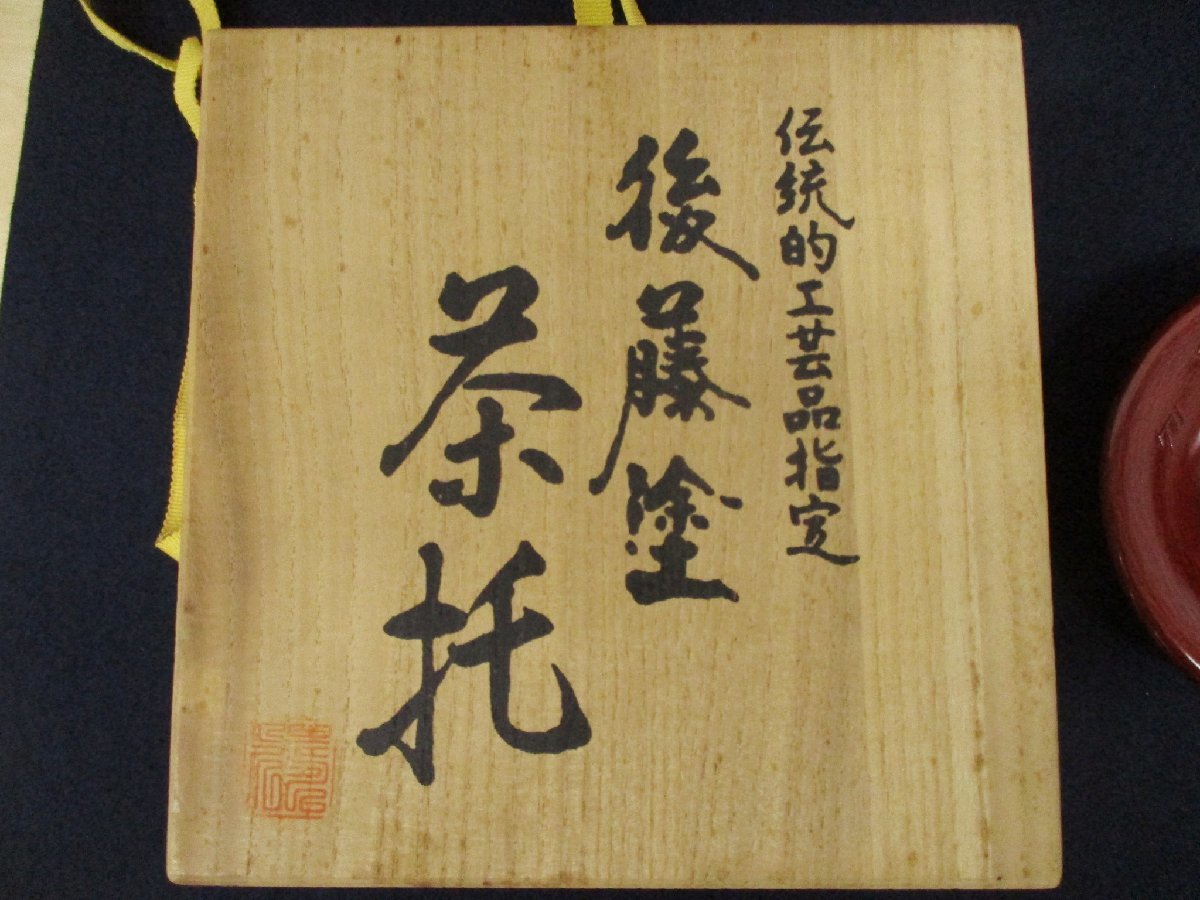 伝統的工芸品指定
後藤塗
茶托